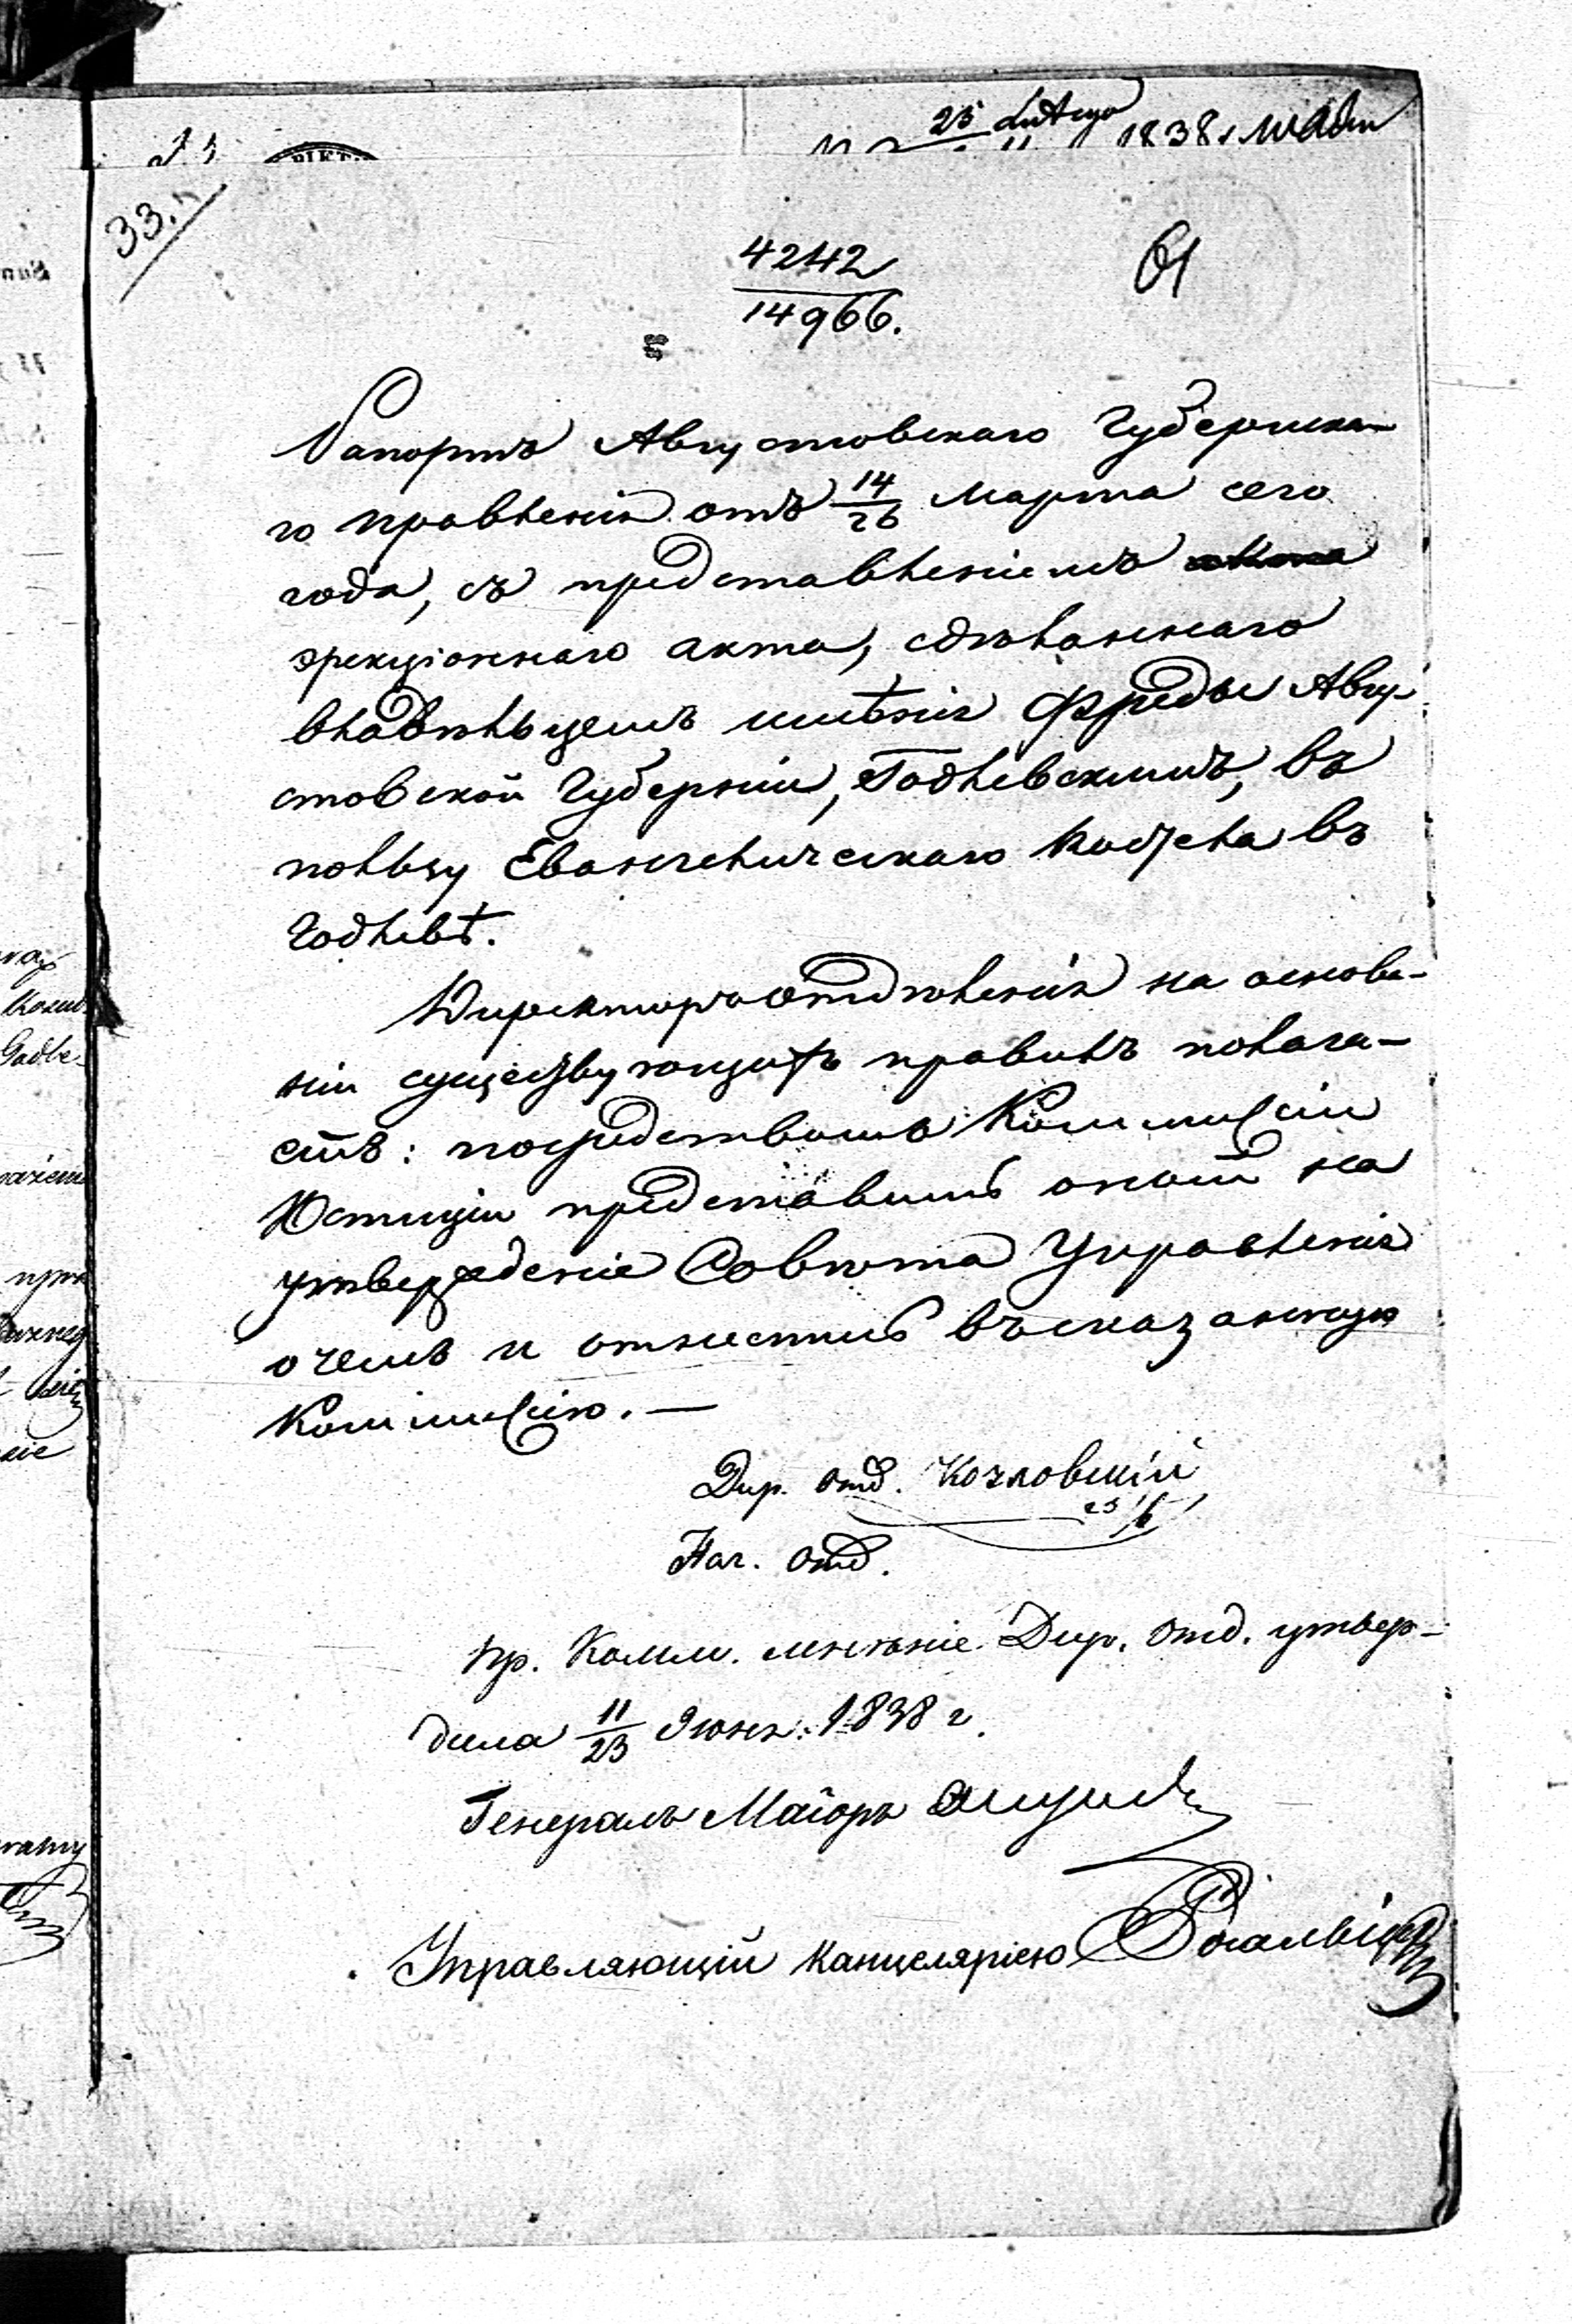 25 Lutego 1838 r.
33.
4242
14966.
61
Рапортъ Августовскаго Губернска-
го правленія отъ 14/26 Марта сего
года, съ представленіемъ
эрекціоннаго акта, сдѣланнаго
владѣльцемъ имѣнія Фреды Авгу-
стовской Губерніи, Годлевскимъ, въ
пользу Евангелическаго Костела въ
Годлевѣ.
Директоръ Отдѣленія на основа-
ніи существующихъ правилъ полага-
етъ: посредствомъ Коммиссіи
Юстиціи представить оный на
утвержденіе Совѣта Управленія
о чемъ и отнестись въ сказанную
Коммиссію. —
Дир. отд. Козловскій
Нач. отд.
Пр. Комм. мнѣніе Дир. Отд. утвер-
дила 11/23 Июня 1838 г.
Генералъ Маіоръ
Управляющій Канцеляріею